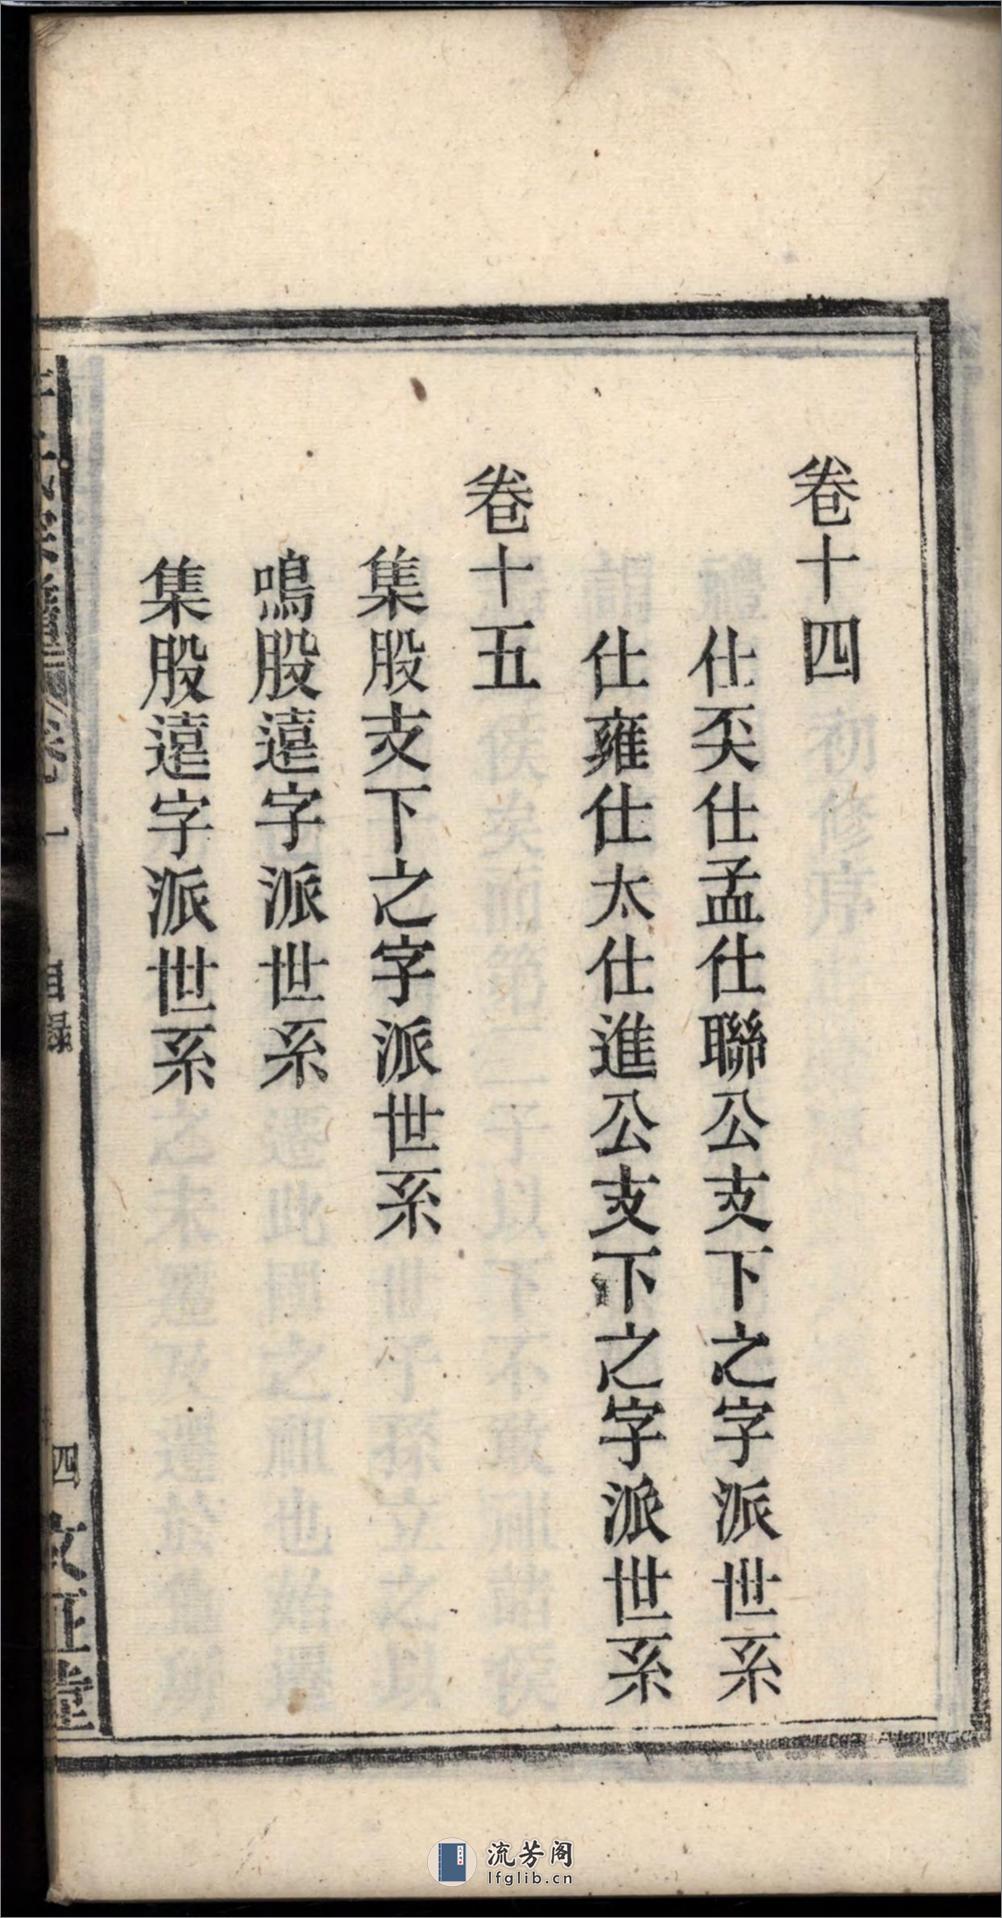 卷十四
仕奀仕孟仕聯公支下之字派世系
仕雍仕太仕進公支下之字派世系
卷十五
集股支下之字派世系
鳴股遠字派世系
集股遠字派世系
目錄
四
流芳阁
lfglib.cn